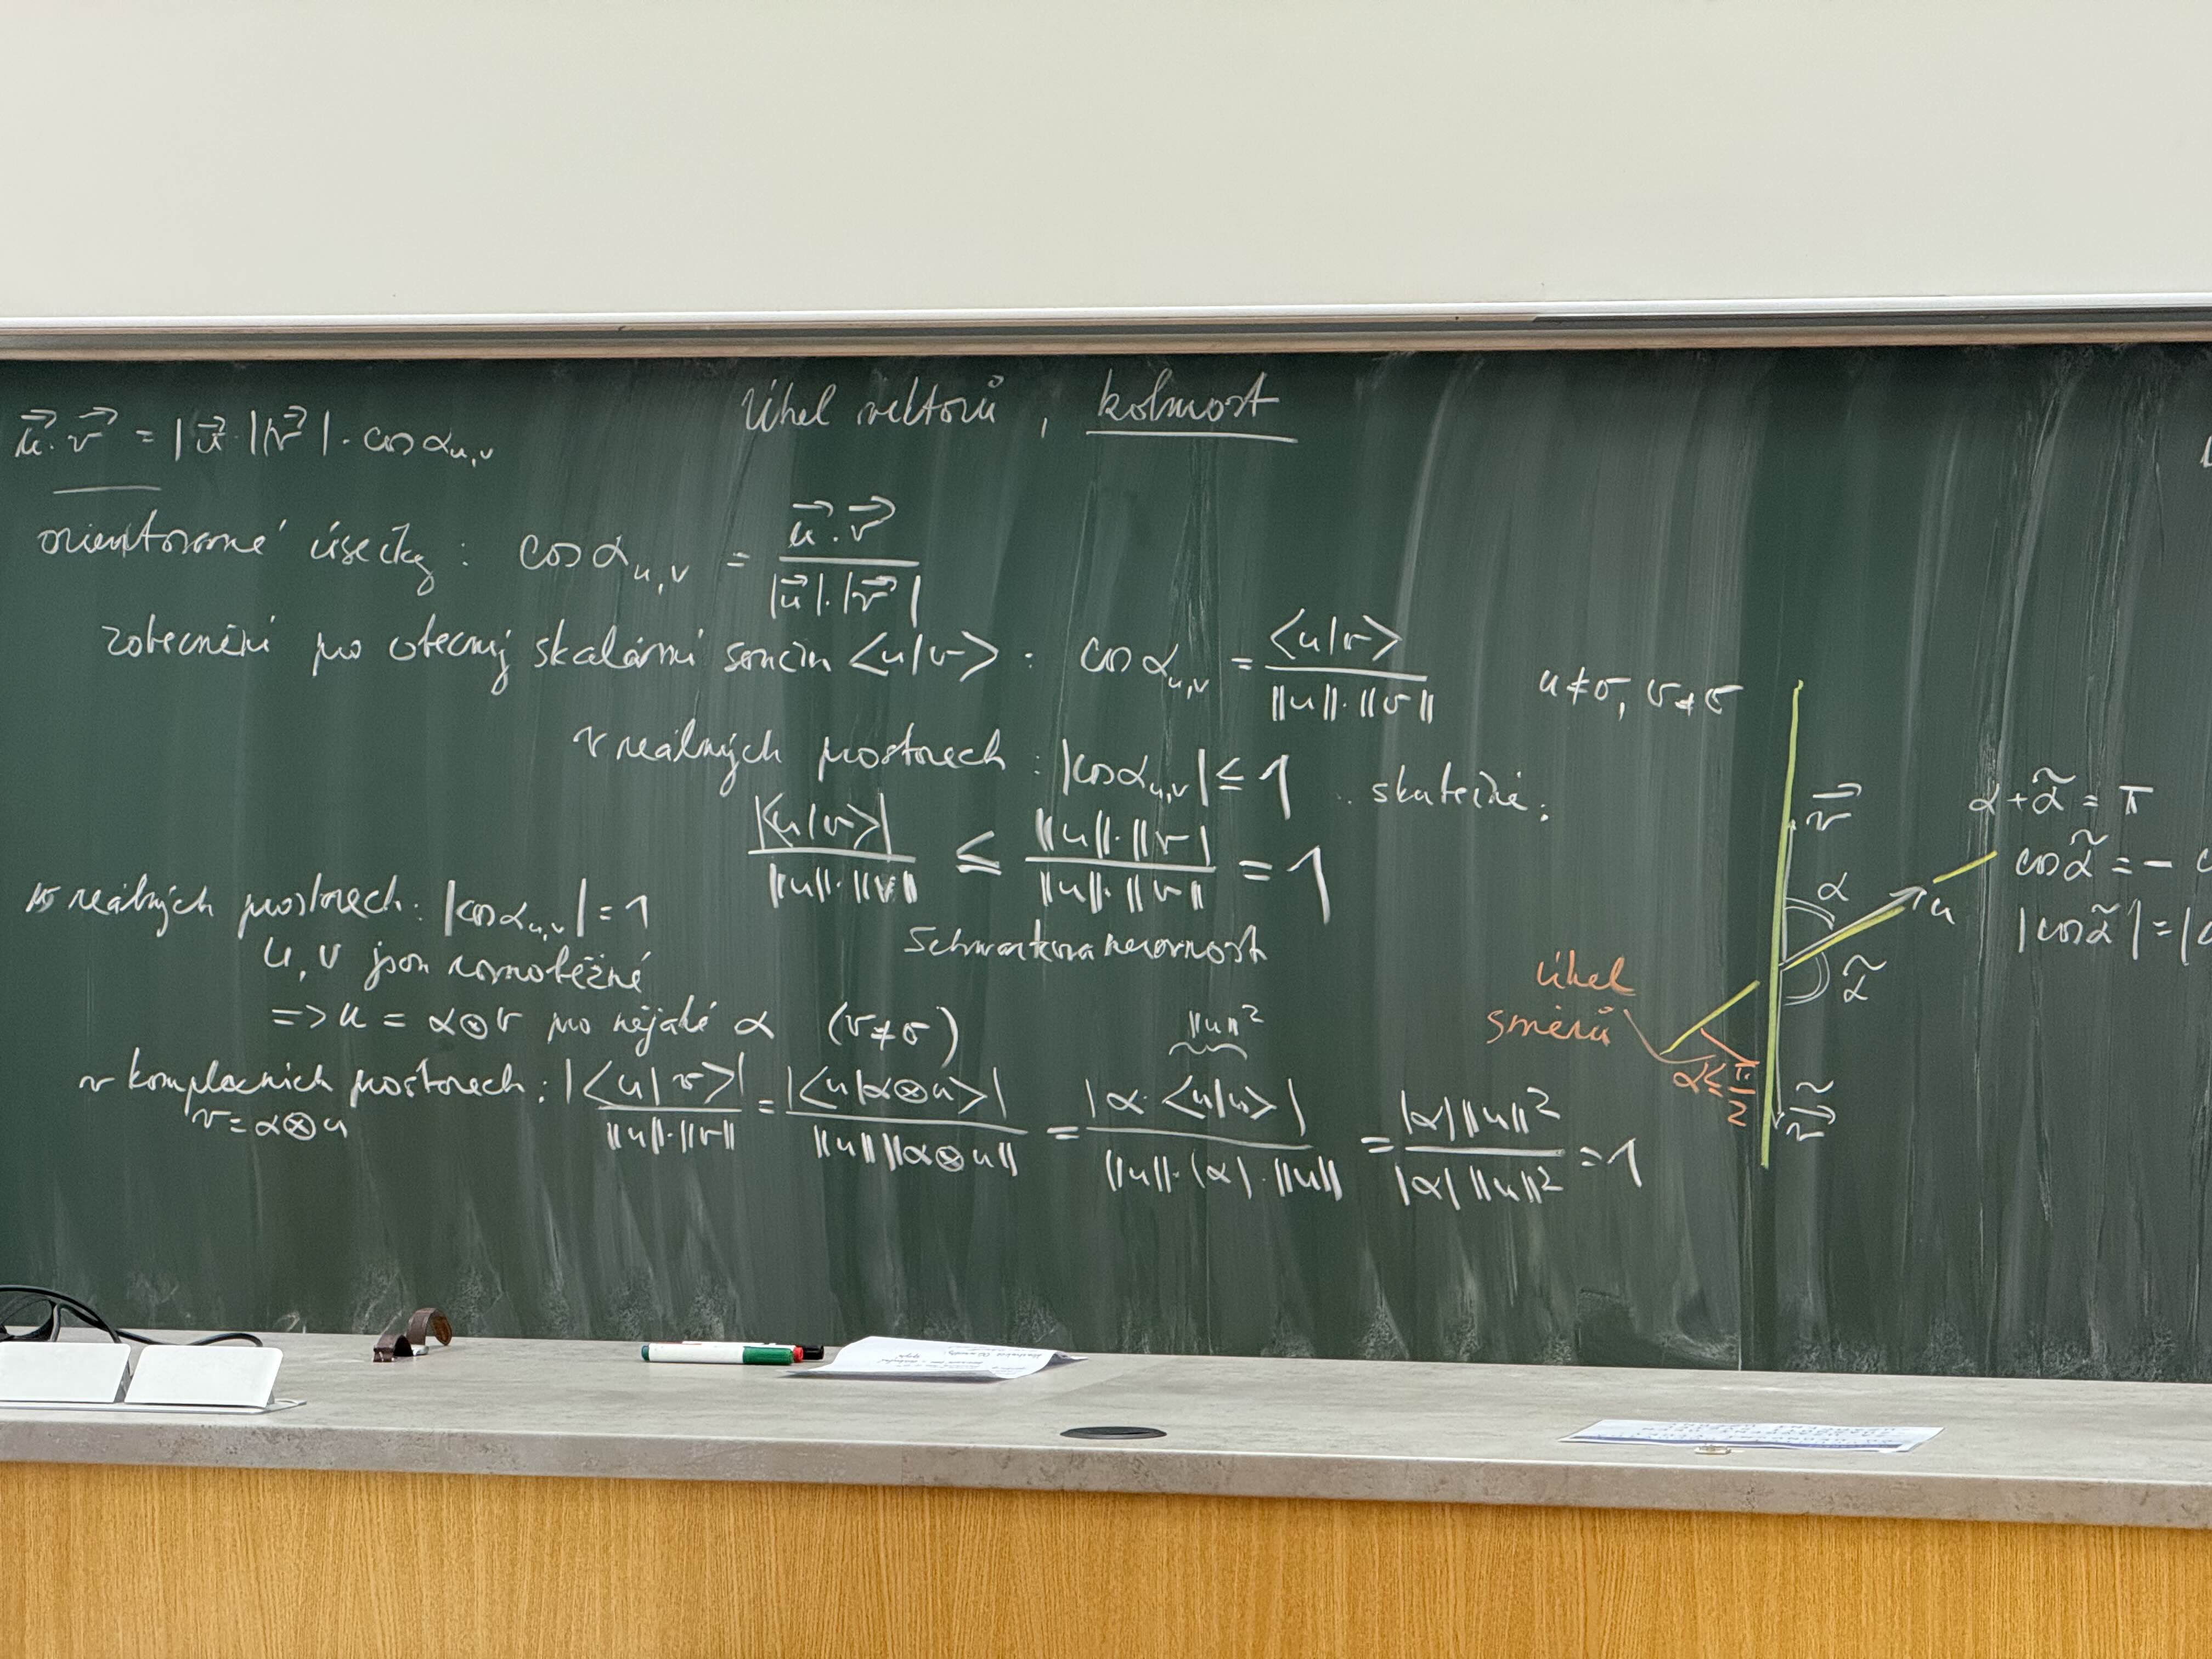 Úhel vektorů, kolmost
u⃗·v⃗ = |u⃗|·|v⃗|·cos α_{u,v}
orientované úsečky: cos α_{u,v} = (u⃗·v⃗) / (|u⃗|·|v⃗|)
zobecnění pro obecný skalární součin <u|v>: cos α_{u,v} = <u|v> / (‖u‖·‖v‖) u≠σ, v≠σ
v reálných prostorech: |cos α_{u,v}| ≤ 1 .. skutečně:
|<u|v>| / (‖u‖·‖v‖) ≤ (‖u‖·‖v‖) / (‖u‖·‖v‖) = 1
Schwartzova nerovnost
v reálných prostorech: |cos α_{u,v}| = 1
u, v jsou rovnoběžné
=> u = α⊗v pro nějaké α (v≠σ)
v komplexních prostorech: |<u|v>| / (‖u‖·‖v‖) = |<u|α⊗u>| / (‖u‖‖α⊗u‖) = |α·<u|u>| / (‖u‖·|α|·‖u‖) = |α|‖u‖² / |α|‖u‖² = 1
‖u‖²
v = α⊗u
v⃗
α
u
α̃
ṽ⃗
úhel
směrů
α ≤ π/2
α + α̃ = π
cos α̃ = - c
|cos α̃| = |c